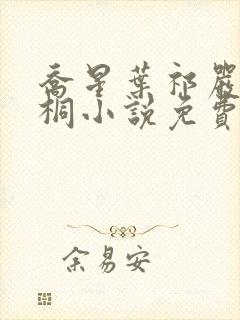 喬星葉祁嚴
桐小說免費
余易安